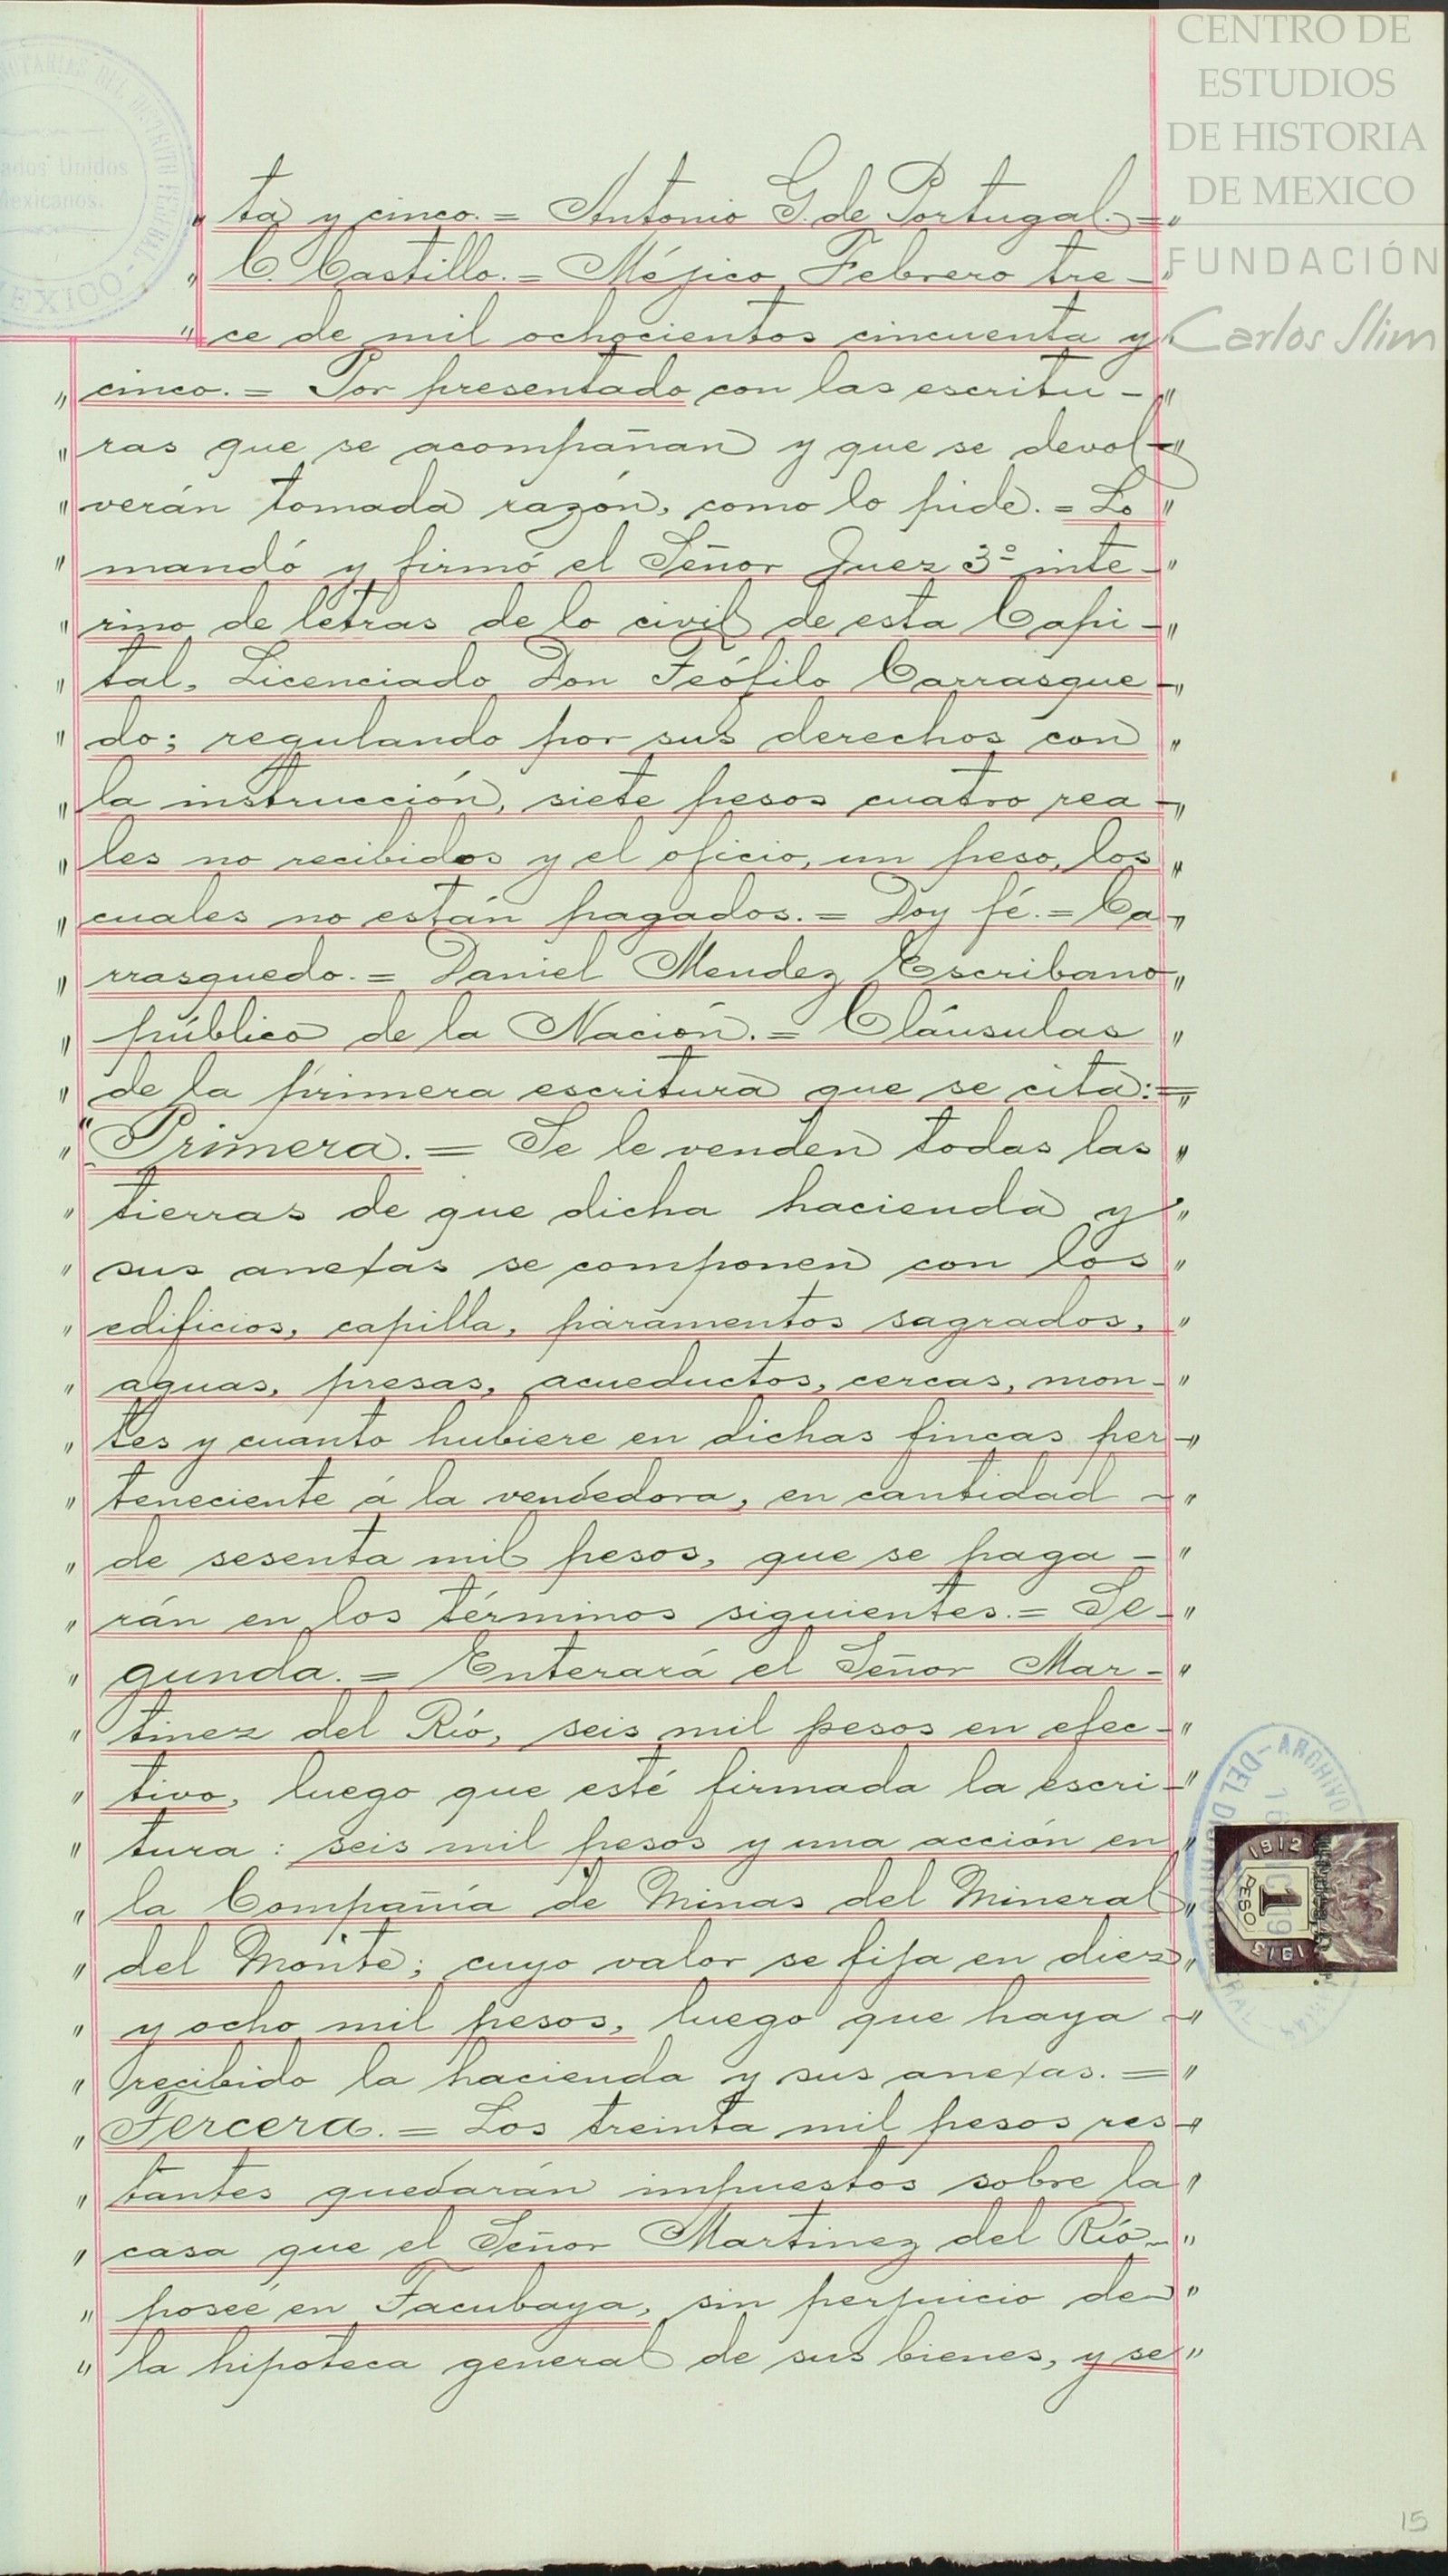 CENTRO DE
ESTUDIOS
DE HISTORIA
DE MEXICO
FUNDACIÓN
Carlos Slim
NOTARIAS DEL DISTRITO FEDERAL
Unidos
Mexicanos.
MEXICO
„ ta y cinco. = Antonio G. de Portugal. = „
„ C. Castillo. = Méjico Febrero tre- „
„ ce de mil ochocientos cincuenta y „
„ cinco. = Por presentado con las escritu- „
„ ras que se acompañan y que se devol- „
„ verán tomada razón, como lo pide. = Lo „
„ mandó y firmó el Señor Juez 3º inte- „
„ rino de letras de lo civil de esta Capi- „
„ tal, Licenciado Don Teófilo Carrasque- „
„ do; regulando por sus derechos con „
„ la instrucción, siete pesos cuatro rea- „
„ les no recibidos y el oficio, un peso, los „
„ cuales no están pagados. = Doy fé. = Ca- „
„ rrasquedo. = Daniel Mendez Escribano „
„ público de la Nación. = Cláusulas „
„ de la primera escritura que se cita: = „
„ "Primera. = Se le venden todas las „
„ tierras de que dicha hacienda y „
„ sus anexas se componen con los „
„ edificios, capilla, paramentos sagrados, „
„ aguas, presas, acueductos, cercas, mon- „
„ tes y cuanto hubiere en dichas fincas per- „
„ teneciente á la vendedora, en cantidad - „
„ de sesenta mil pesos, que se paga- „
„ rán en los términos siguientes. = Se- „
„ gunda. = Enterará el Señor Mar- „
„ tinez del Río, seis mil pesos en efec- „
„ tivo, luego que esté firmada la escri- „
„ tura: seis mil pesos y una acción en „
„ la Compañía de Minas del Mineral „
„ del Monte; cuyo valor se fija en diez „
„ y ocho mil pesos, luego que haya - „
„ recibido la hacienda y sus anexas. = „
„ Tercera. = Los treinta mil pesos res- „
„ tantes quedarán impuestos sobre la „
„ casa que el Señor Martinez del Río - „
„ posée en Tacubaya, sin perjuicio de „
„ la hipoteca general de sus bienes, y se „
ARCHIVO
DEL
1912
1
PESO
1913
15